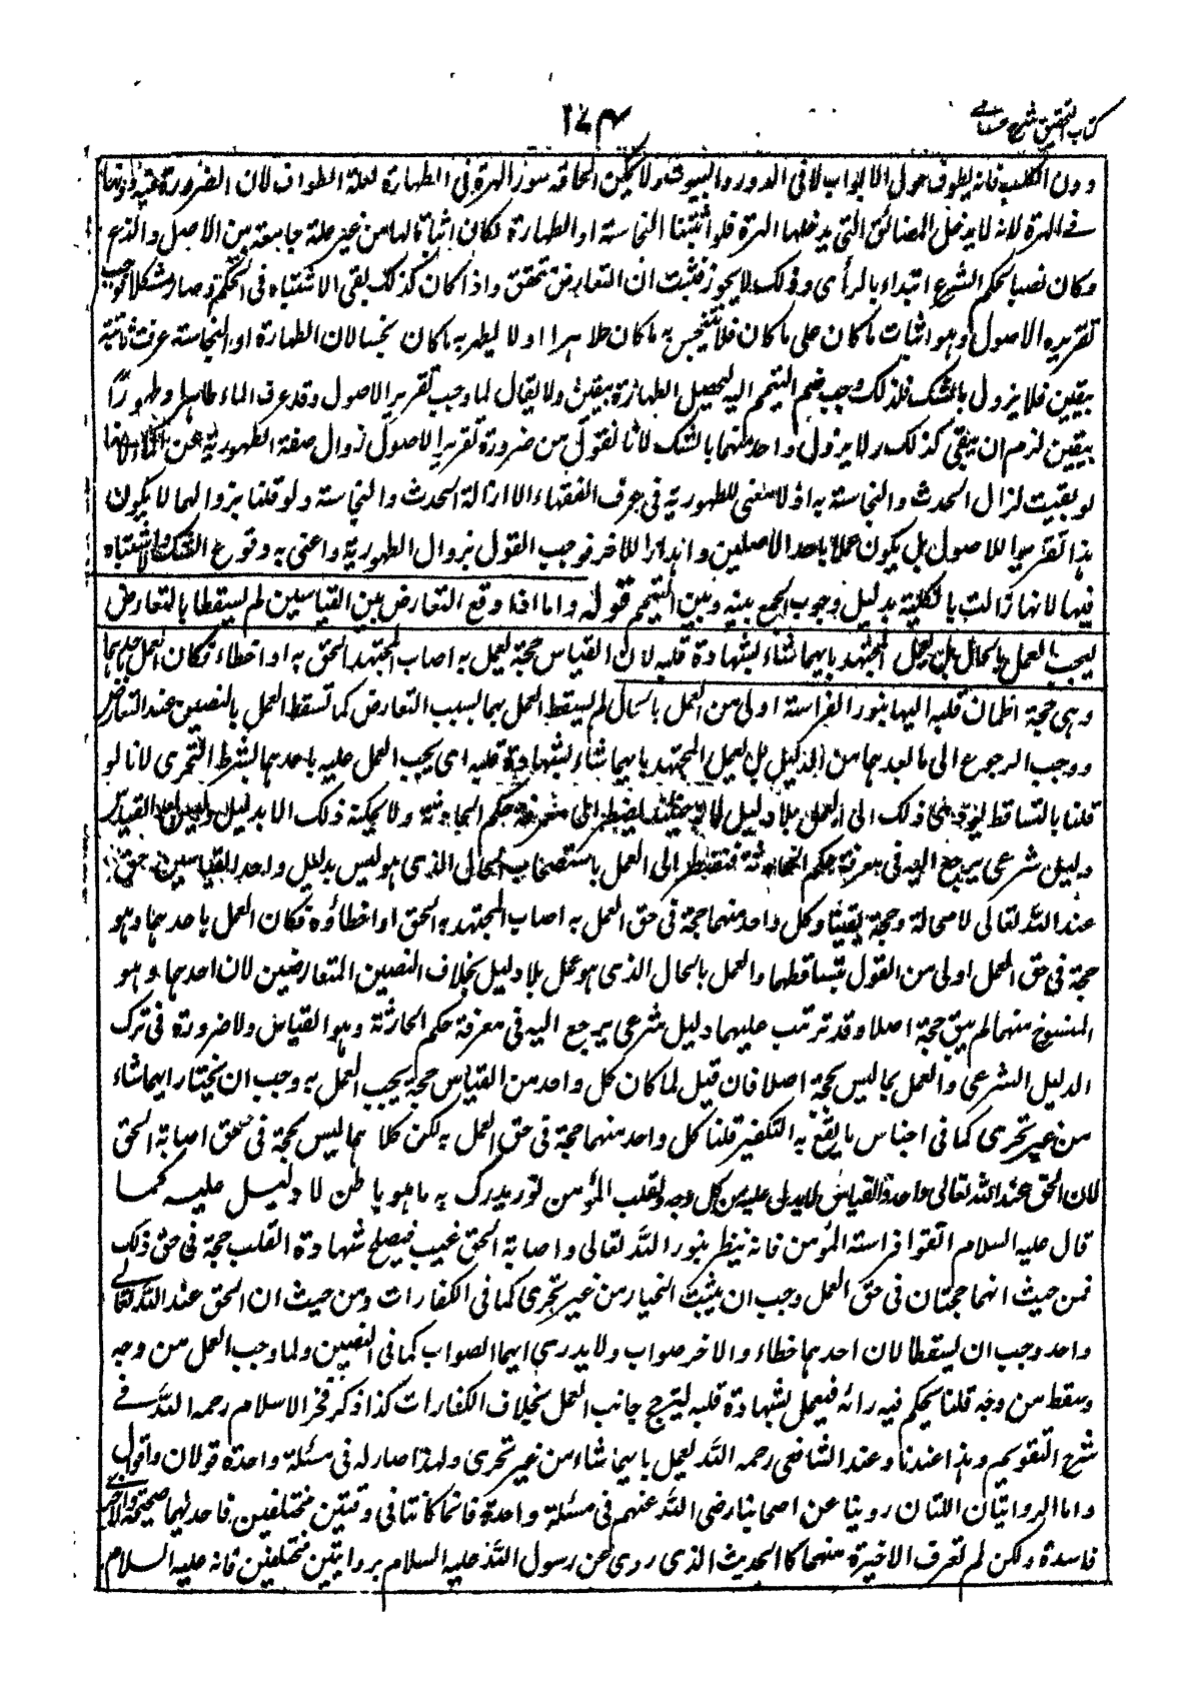 كتاب التحقيق شرح حسامى
دون الكلب فانه يطوف حول الابواب لا فى الدور والبيوت فلا يمكن الحاقه بسور الهرة فى الطهارة لعلة الطواف لان الضرورة فيه دونها
فى الهرة لانه لا يدخل المضائق التى يدخلها الهرة فلو اثبتنا النجاسة او الطهارة لكان اثباتا لها من غير علة جامعة بين الاصل والفرع
وكان نصبا لحكم الشرع ابتداء بالرأى وذلك لا يجوز فثبت ان التعارض تحقق واذا كان كذلك بقى الاشتباه فى الحكم وصار مشكلا فوجب
تقرير الاصول وهو اثبات ما كان على ما كان فلا يتنجس به ما كان طاهرا ولا يطهر به ما كان نجسا لان الطهارة او النجاسة عرفت ثابتة
بيقين فلا يزول بالشك فلذلك وجب ضم التيمم اليه ليحصل الطهارة بيقين ولا يقال لما وجب تقرير الاصول وقد عرف الماء طاهرا وطهورا
بيقين لزم ان يبقى كذلك ولا يزول واحد منهما بالشك لانا نقول من ضرورة تقرير الاصول زوال صفة الطهورية عن الماء لانها
لو بقيت لزال الحدث والنجاسة به اذ لا معنى للطهورية فى عرف الفقهاء الا ازالة الحدث والنجاسة ولو قلنا بزوالهما لا يكون
هذا تقريرا للاصول بل يكون عملا باحد الاصلين واهدارا للاخر فوجب القول بزوال الطهورية واعنى به وقوع الشك والاشتباه
فيها لانها زالت بالكلية بدليل وجوب الجمع بينه وبين التيمم قوله واما اذا وقع التعارض بين القياسين لم يسقطا بالتعارض
ليجب العمل بالحال بل يعمل المجتهد بايهما شاء بشهادة قلبه لان القياس حجة يعمل به اصاب المجتهد الحق به او اخطاء فكان العمل باحدهما
وهى حجة اطمأن قلبه اليها بنور الفراسة اولى من العمل بالحال لم يسقط العمل بهما بسبب التعارض كما تسقط العمل بالنصين عند التعارض
ووجب الرجوع الى ما بعدهما من الدليل بل يعمل المجتهد بايهما شاء بشهادة قلبه اى يجب العمل عليه باحدهما بشرط التحرى لانا لو
قلنا بالتساقط يؤدى ذلك الى العمل بلا دليل لانه حينئذ يضطر الى معرفة حكم الحادثة ولا يمكنه ذلك الا بدليل وليس بعد القياس
دليل شرعى يرجع اليه فى معرفة حكم الحادثة فيضطر الى العمل باستصحاب الحال الذى هو ليس بدليل واحد القياسين حق
عند الله تعالى لا محالة وحجة يقينا وكل واحد منهما حجة فى حق العمل به اصاب المجتهد به الحق او اخطاؤه فكان العمل باحدهما وهو
حجة فى حق العمل اولى من القول بتساقطهما والعمل بالحال الذى هو عمل بلا دليل بخلاف النصين المتعارضين لان احدهما وهو
المنسوخ منهما لم يبق حجة اصلا وقد ترتب عليهما دليل شرعى يرجع اليه فى معرفة حكم الحادثة وهو القياس ولا ضرورة فى ترك
الدليل الشرعى والعمل بما ليس بحجة اصلا فان قيل لما كان كل واحد من القياس حجة يجب العمل به وجب ان يختار ايهما شاء
من غير تحرى كما فى اجناس ما يقع به التكفير قلنا كل واحد منهما حجة فى حق العمل به لكن كلاهما ليس بحجة فى حق اصابة الحق
لان الحق عند الله تعالى واحد والقياس لا يدل عليه من كل وجه ولقلب المؤمن نور يدرك به ما هو باطن لا دليل عليه كما
قال عليه السلام اتقوا فراسة المؤمن فانه ينظر بنور الله تعالى واصابة الحق غيب فيصلح شهادة القلب حجة فى حق ذلك
فمن حيث انهما حجتان فى حق العمل وجب ان يثبت الخيار من غير تحرى كما فى الكفارات ومن حيث ان الحق عند الله تعالى
واحد وجب ان يسقطا لان احدهما خطاء والاخر صواب ولا يدرى ايهما الصواب كما فى النصين ولما وجب العمل من وجه
وسقط من وجه قلنا يحكم فيه رائه فيعمل بشهادة قلبه ليترجح جانب العمل بخلاف الكفارات كذا ذكر فخر الاسلام رحمه الله فى
شرح التقويم وهذا عندنا وعند الشافعى رحمه الله يعمل بايهما شاء من غير تحرى ولهذا صار له فى مسئلة واحدة قولان واقوال
واما الروايتان اللتان روينا عن اصحابنا رضى الله عنهم فى مسئلة واحدة فانما كانتا فى وقتين مختلفين فاحدهما صحيحة والاخرى
فاسدة ولكن لم تعرف الاخيرة منهما كالحديث الذى روى عن رسول الله عليه السلام بروايتين مختلفتين فانه عليه السلام